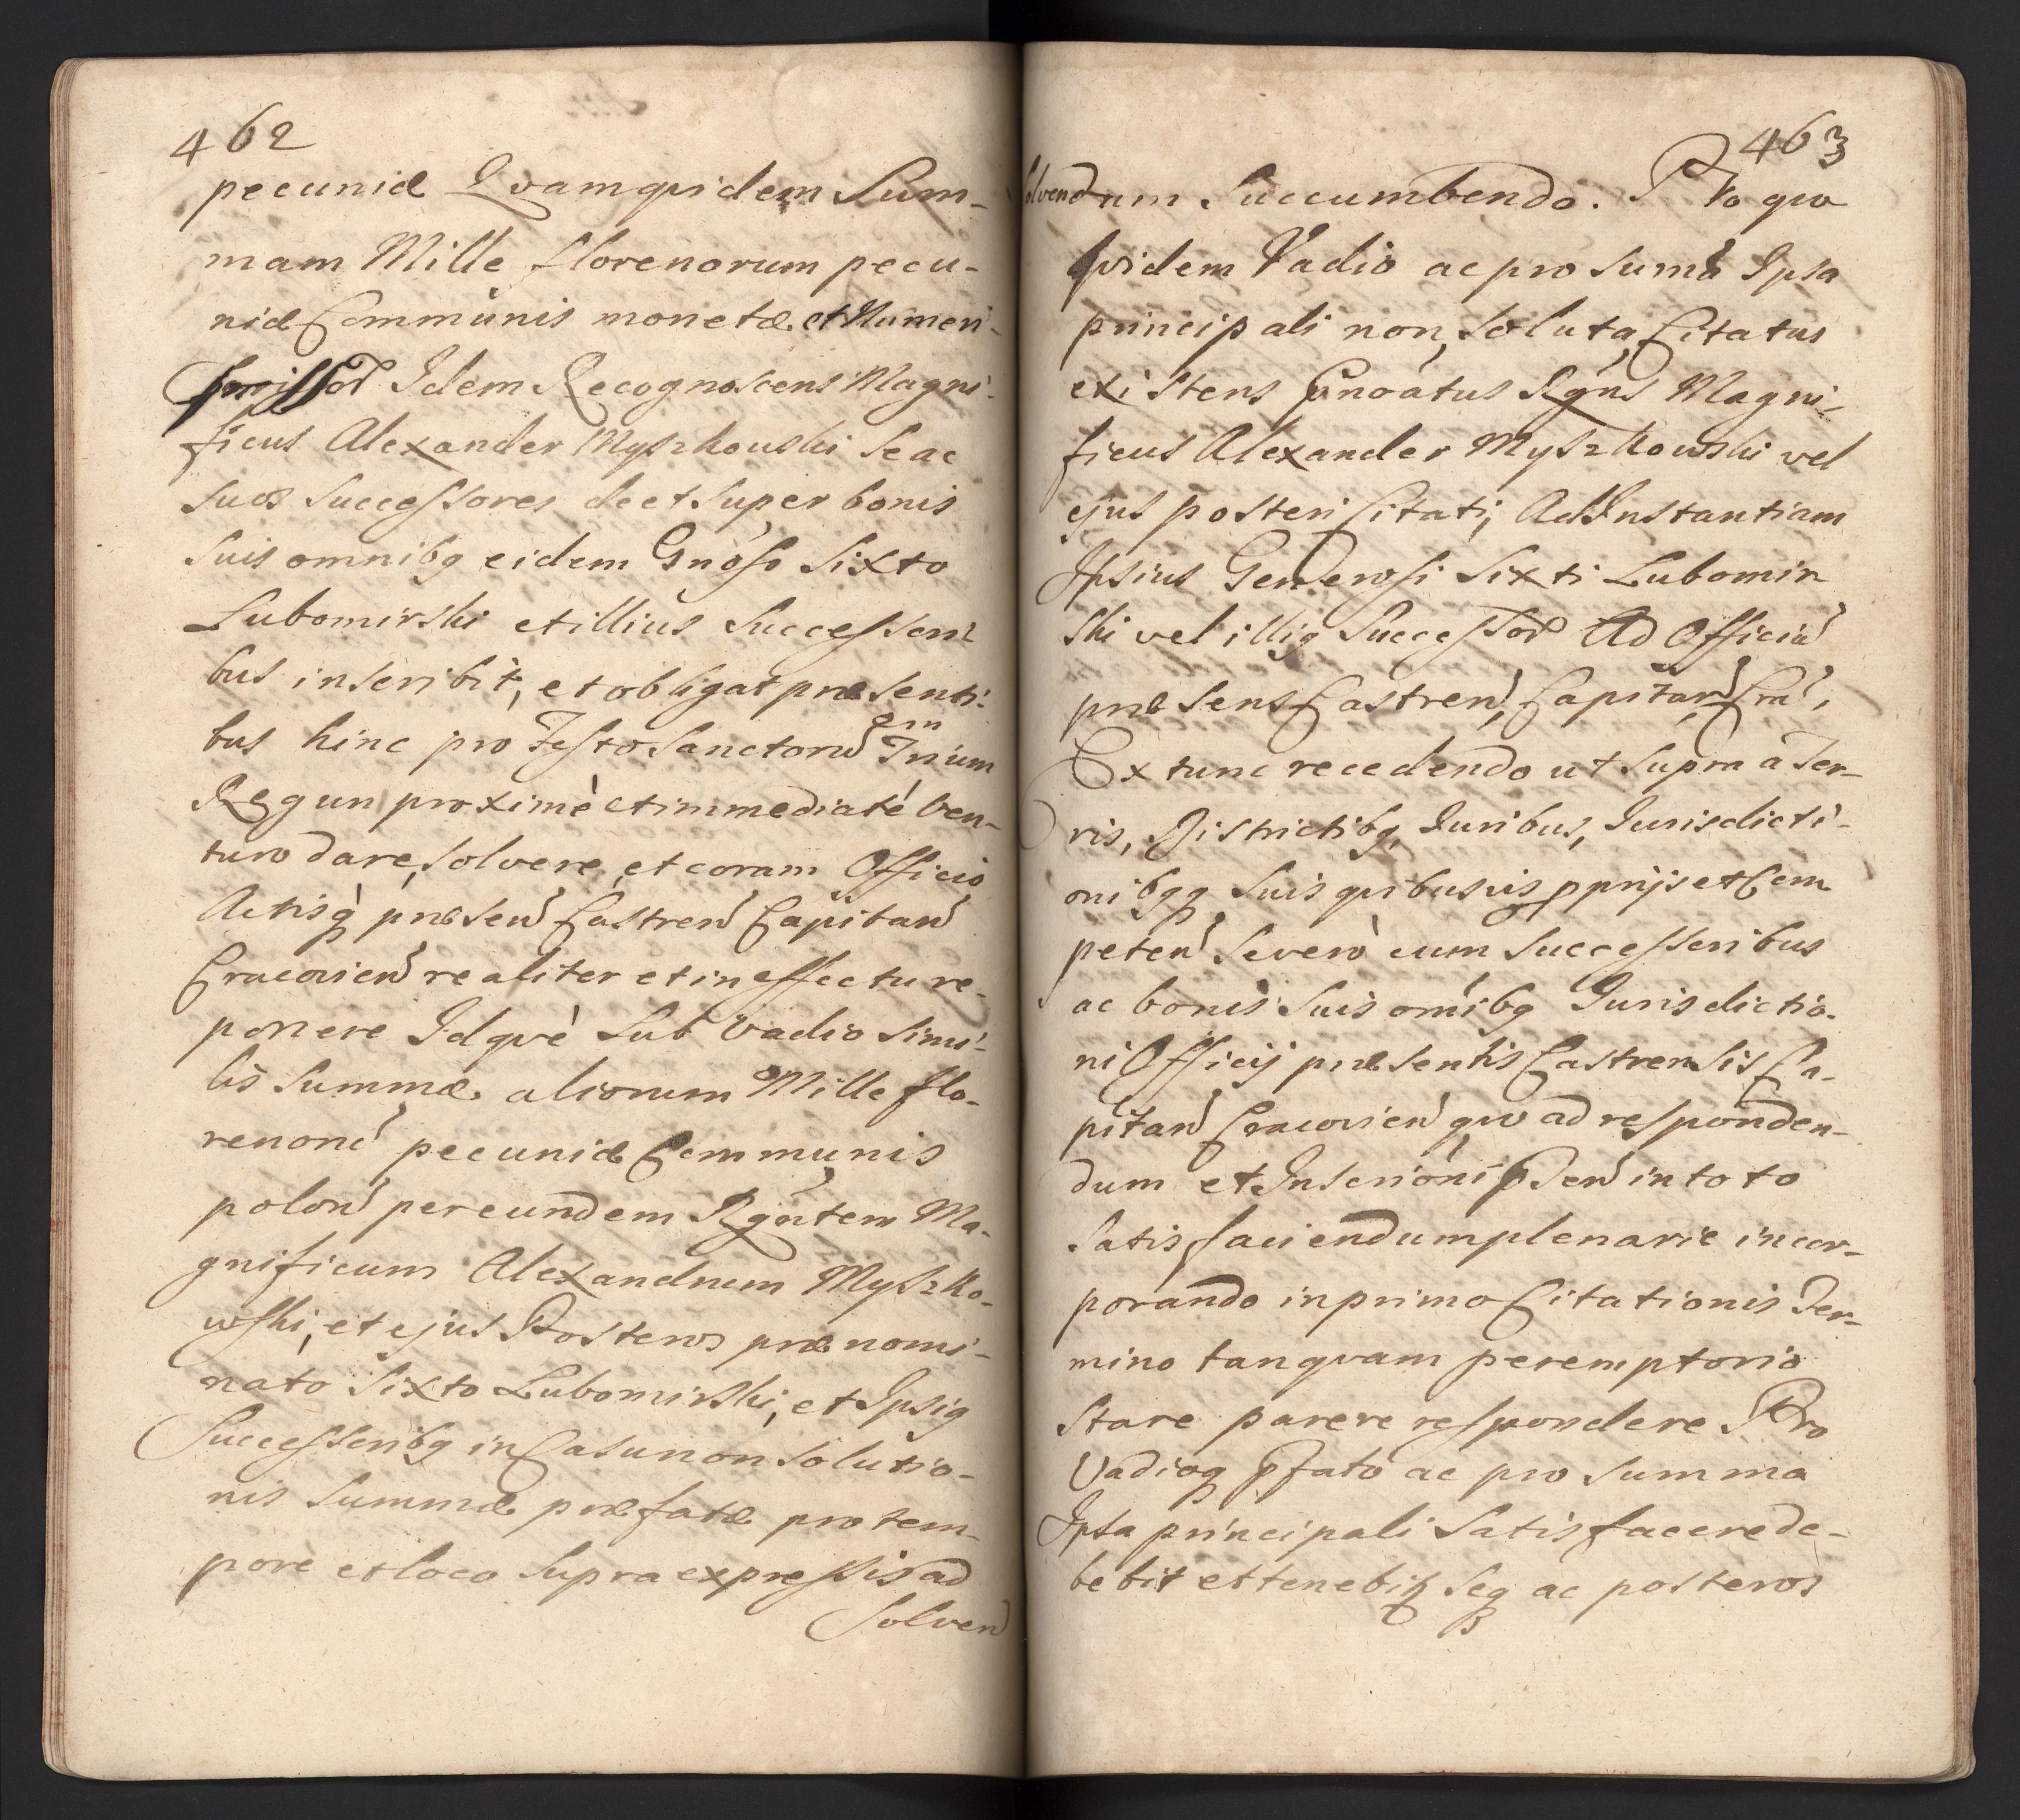 462
pecuniæ Qvamqvidem Sum-
mam Mille florenorum pecu-
niæ Communis monetæ et Numeri
Idem Recognoscens Magni-
ficus Alexander Myszkouski Se ac
Suos Successores de et Super bonis
Suis omnibq eidem Gnoso Sixto
Lubomirski et illius Successori
bus inscribit, et obligat præsenti-
bus hinc pro Festo Sanctoru Trium
Regun proximè et immediaté ven-
turo dare, solvere, et coram Officio
Actisq præsen Castren Capitan
Cracovien realiter et in effectu re-
ponere Idqvè Sub Vadio simi-
lis Summæ aliorum Mille flo-
renoru pecuniæ Communis
polon per eundem Rgntem Ma-
gnificum Alexandrum Myszko-
wski, et ejus Posteros præ nomi-
nato Sixto Lubomirski, et Ipsiq
Successoribq in Casu non Solutio-
nis Summæ præfatæ pro tem-
pore et loco Supra expressis ad
Solven
463
Solvendum Succumbendo. Pro qvo
qvidem Vadio ac pro Suma Ipsa
principali non, Soluta, Citatus
existens Rgns Magni-
ficus Alexander Myszkowski vel
ejus posteri Citati, Ad Instantiam
Ipsius Generosi Sixti Lubomir
ski vel illiq Successor Ad Officiu
præsens Castren, Capitan Cra,
Ex tunc recedendo ut Supra a Ter-
ris, Districtibq, Iuribus, Iurisdicti-
onibqq Suis qvibusvis pprijs et Com
peten Severò cum Successoribus
ac bonis Suis omibq Iurisdictio-
ni Officij præsentis Castrensis Ca-
pitan Cracovien qvo ad responden-
dum et Inscrioni pSen in toto
Satisfaciendum plenarie incor-
porando in primo Citationis Ter-
mino tanqvam peremptorio
Stare parere respondere Pro
Vadioq pfato ac pro Summa
Ipsa principali Satisfacere de-
bebit et tenebit Seq ac posteros